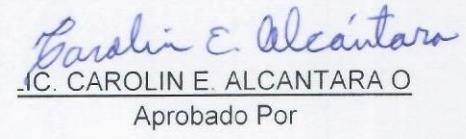 Carolin E. Alcántara
LIC. CAROLIN E. ALCANTARA O
Aprobado Por